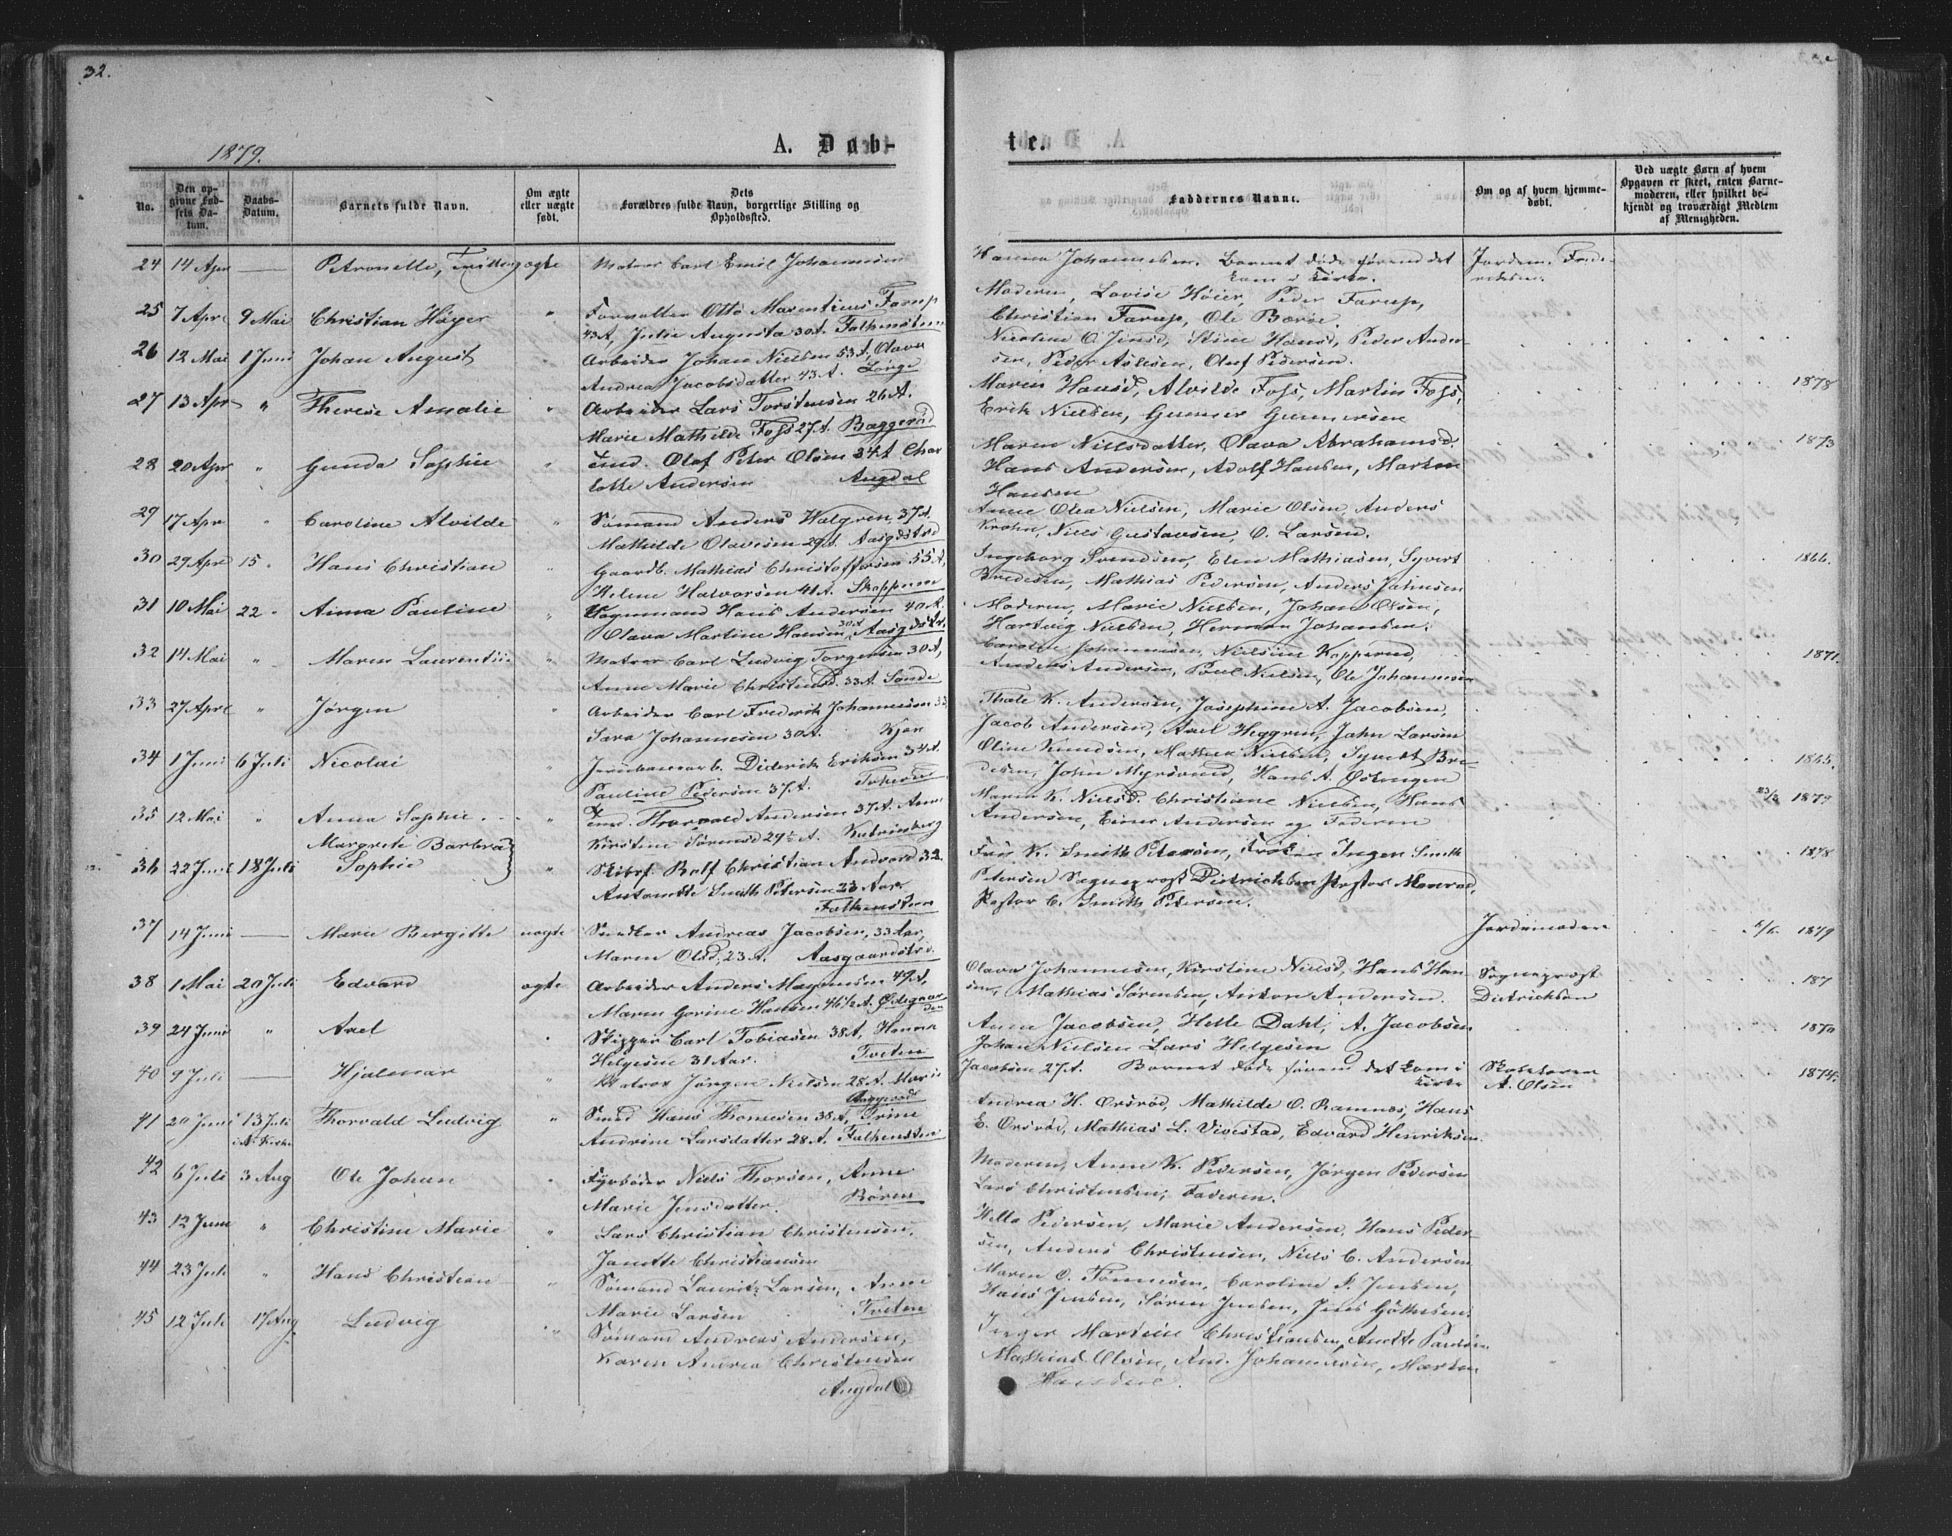 32.
1879.
A. Døb-
te.
No.
Den op-
givne Fød-
sels Da-
tum.
Daabs-
Datum.
Barnets fulde Navn.
Om ægte
eller uægte
født.
Dets
Forældres fulde Navn, borgerlige Stilling og
Opholdssted.
Faddernes Navne.
Om og af hvem hjemme-
døbt.
Ved uægte Børn af hvem
Opgaven er skeet, enten Barne-
moderen, eller hvilket be-
kjendt og troværdigt Medlem
af Menigheden.
24 14 Apr — Petronelle, ægte Matros Carl Emil Johannesen
Hanna Johannesen. Barnet døde førend det
kom i Kirke.
25 7 Apr 9 Mai Christian Høyer " Forvalter Otto Maxentius Farup
43 A, Julie Augusta 30 A. Falkensteen
Moderen, Lovise Höier, Peder Farup,
Christian Farup, Ole Bærøe.
26 12 Mai 1 Juni Johan August Arbeider Johan Nielsen 53 A, Olava
Andrea Jacobsdatter 43 A. Lørge
Nicoline O. Jensd, Stine Hansd, Peder Ander-
sen, Peder Aslesen, Oluf Pedersen.
27 13 Apr " Therese Amalie " Arbeider Lars Torstensen 26 A.
Marie Mathilde Foss 27 A. Baggerød
Maren Hansd, Alvilde Foss, Martin Foss,
Erik Nielsen, Gunner Gunnersen
1878
28 20 Apr " Gunda Sophie " Smd. Olaf Peter Olsen 34 A Char
lotte Andersen Augdal
Maren Nielsdatter, Olava Abrahamsd.
Hans Andersen, Adolf Hansen, Marten
Hansen
1873
29 17 Apr " Caroline Alvilde " Sømand Anders Walgren, 37 A.
Mathilde Olavesen 29 A. Aasgdstrd
Anne Olea Nielsen, Marie Olsen, Anders
Krohn, Niels Gustavsen, O. Larsen.
30 29 Apr 15 " Hans Christian " Gaardb. Mathias Christoffersen 55 A,
Helene Halvorsen 41 A. Skoppum
Ingeborg Svendsen, Elen Mathiasen, Syvert
Bredesen, Mathias Pedersen, Anders Jahnsen
1866.
31 10 Mai 22 " Anna Pauline " Vognmand Hans Andersen 40 A.
Olava Martine Hansen 30 A, Aasgdstrd.
Moderen, Marie Nielsen, Johan Olsen,
Hartvig Nielsen, Herman Johansen.
32 14 Mai " Maren Laurentii " Matros Carl Ludvig Torgersen 30 A,
Anne Marie Christensd. 33 A. Sande
Caroline Johannesen, Nielsine Kopperud,
Anders Andersen, Poul Nielsen, Ole Johannesen
1871.
33 27 Apr " Jørgen " Arbeider Carl Fredrik Johannesen 33
Sara Johannesen 30 A. Kjær
Thale K. Andersen, Josephine A. Jacobsen,
Jacob Andersen, Axel Heggren, John Larsen
34 1 Juni 6 Juli Nicolai " Jernbanearb. Diderik Eriksen 34 A.
Pauline Pedersen 37 A.
Oline Knudsen, Mathea Nielsen, Syvert Bre-
desen, John Myrsund, Hans A. Østengen
1865.
35 12 Mai " Anna Sophie " Smd. Thorvald Andersen 37 A. Anne
Kirstine Sörensd 29½ A. Katrineberg
Maren K. Nielsd. Christiane Nielsen, Hans
Andersen, Einer Andersen og Faderen
1879
36 22 Juni 18 Juli Margrete Barbra
Sophie " Skibsf. Rolf Christian Andvord 32.
Antonette Smith Petersen 23 Aar.
Falkensteen
Fru K. Smith Petersen, Frøken Inger Smith
Petersen Sogneprost Dietrichson Pastor Monrad,
Pastor C. Smith Petersen.
1878
37 14 Juni — Marie Bergitte uægte Smdlær Andreas Jacobsen, 33 Aar,
Maren Olsd, 23 A. Aasgaardstrd.
Jordemoderen
1879
38 1 Mai 20 Juli Edvard ægte Arbeider Anders Magnusen 49 A,
Maren Gorine Hansen 46½ A. Ødegaar
den
Olava Johannesen, Kirstine Nielsd, Hans Han
sen, Mathias Sørensen, Anton Andersen.
Sogneprost
Dietrichson
187
39 24 Juni " Axel Skipper Carl Tobiasen 38 A, Hanna
Helgesen 31 Aar. Tveten
Anne Jacobsen, Helle Dahl, A. Jacobsen
Johan Nielsen Lars Helgesen
1870
40 9 Juli — Hjalmar " Matros Jørgen Nielsen 28 A. Marie
Jacobsen 27 A. Barnet døde førend det kom i
Kirke
Skolelærer
A. Olsen
1874.
41 20 Juni 13 Juli
i N. Kirke Thorvald Ludvig " Smed Hans Thomesen 38 A, Trine
Andrine Larsdatter 28 A. Falkensteen
Andrea H. Orsrød, Mathilde O. Ramnæs, Hans
E. Orsrød, Mathias L. Vivestad, Edvard Henriksen.
42 6 Juli 3 Aug Ole Johan " Fyrbøder Niels Thorsen, Anne
Marie Jensdatter. Børen
Moderen, Anne K. Pedersen, Jørgen Pedersen
Lars Christensen, Faderen.
43 12 Juni " Christine Marie " Lars Christian Christensen,
Janette Christiansen
Helle Pedersen, Marie Andersen, Hans Peder-
sen, Anders Christensen, Niels C. Andersen
44 23 Juli " Hans Christian " Sømand Lauritz Larsen, Anne
Marie Larsen Tveten
Maren O. Tønnesen, Caroline A. Jensen,
Hans Jensen, Søren Jensen, Jens Göthesen
45 12 Juli 17 Aug Ludvig " Sømand Andreas Andersen,
Karen Andrea Christensen
Augdal
Inger Martine Christiansen, Anette
Mathias Olsen, And. Johannesen, Marten